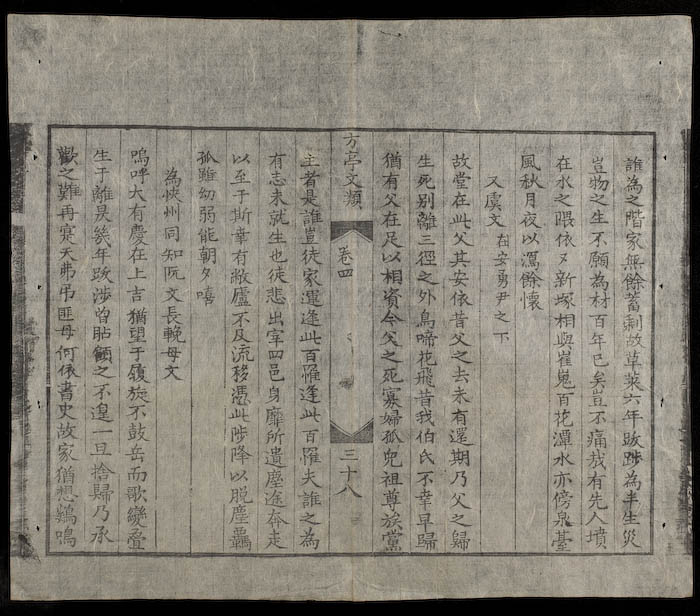 誰為之階家無餘蓄剩故草萊六年跋踄為半生災
豈物之生不願為材百年已矣豈不痛哉有先人墳
在水之隈依々新塚相與崔嵬百花潭水亦傍泉臺
風秋月夜以瀉餘懷
又虞文 在安勇尹之下
故堂在此父其安依昔父之去未有還期乃父之歸
生死别離三徑之外鳥啼花飛昔我伯氏不幸早歸
猶有父在足以相資今父之死寡婦孤兒祖尊族黨
方亭文類 卷四 三十八
主者是誰豈徒家運逢此百罹逢此百罹夫誰之為
有志未就生也徒悲出宰四邑身靡所遺塵途奔走
以至于斯幸有敝廬不及流移憑此陟降以脱塵羈
孤雖幼弱能朝夕嘻
為峽州同知阮文長輓母文
嗚呼大有慶在上吉猶望于履旋不鼓岳而歌變疊
生于離昃幾年跋涉曽貼顧之不遑一旦捨歸乃承
歡之難再蹇天弗吊匪母何依書史故家猶想鷄鳴